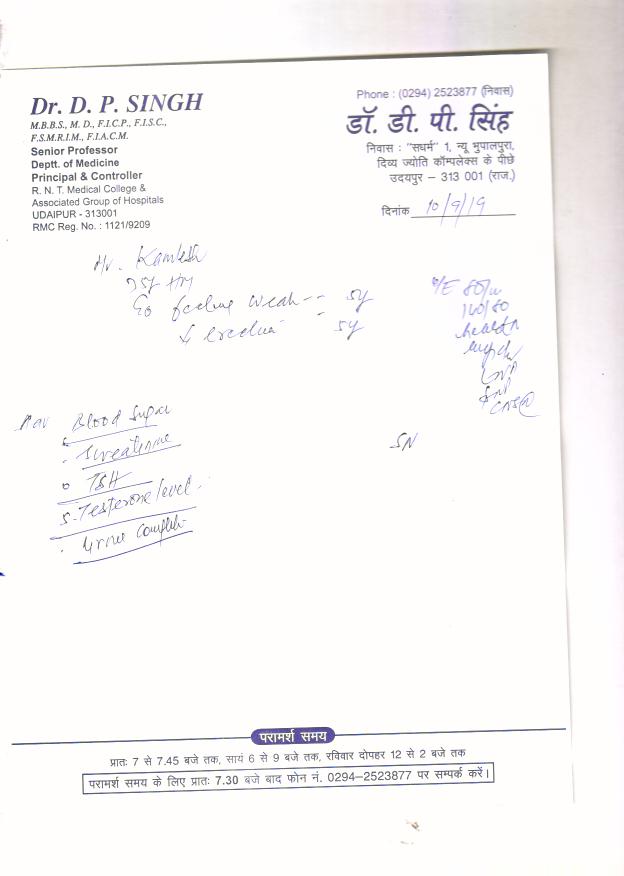 Dr. D. P. SINGH
M.B.B.S., M. D., F.I.C.P., F.I.S.C.,
F.S.M.R.I.M., F.I.A.C.M.
Senior Professor
Deptt. of Medicine
Principal & Controller
R. N. T. Medical College &
Associated Group of Hospitals
UDAIPUR - 313001
RMC Reg. No. : 1121/9209
Phone : (0294) 2523877 (निवास)
डॉ. डी. पी. सिंह
निवास : "सधर्म" 1, न्यू भुपालपुरा,
दिव्य ज्योति कॉम्पलेक्स के पीछे
उदयपुर – 313 001 (राज.)
दिनांक 10/9/19
Mr. Kamlesh
feeling weak -- 5y
5y
140/80
Blood Sugar
TSH
S. Testerone level
SN
परामर्श समय
प्रातः 7 से 7.45 बजे तक, सायं 6 से 9 बजे तक, रविवार दोपहर 12 से 2 बजे तक
परामर्श समय के लिए प्रातः 7.30 बजे बाद फोन नं. 0294–2523877 पर सम्पर्क करें।